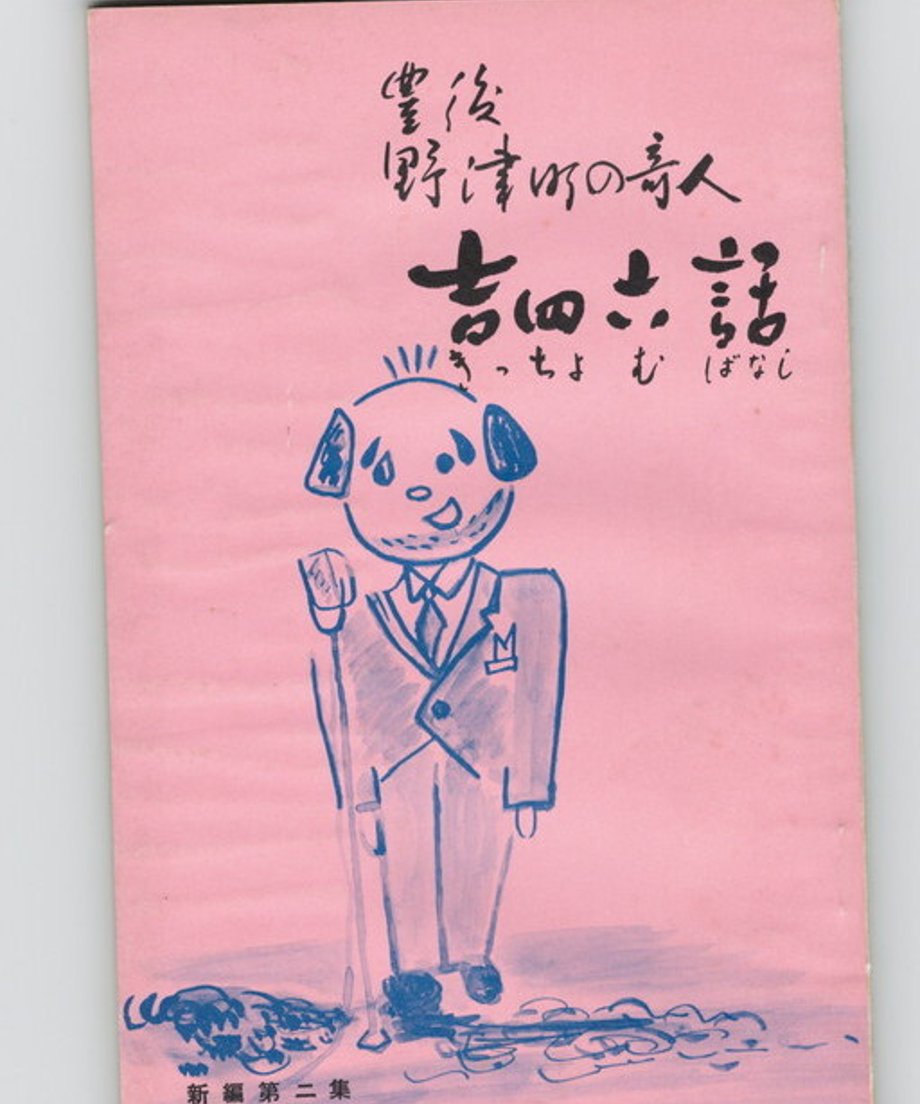 豊後
野津町の奇人
吉四六話
きっちょむばなし
M
新編第二集